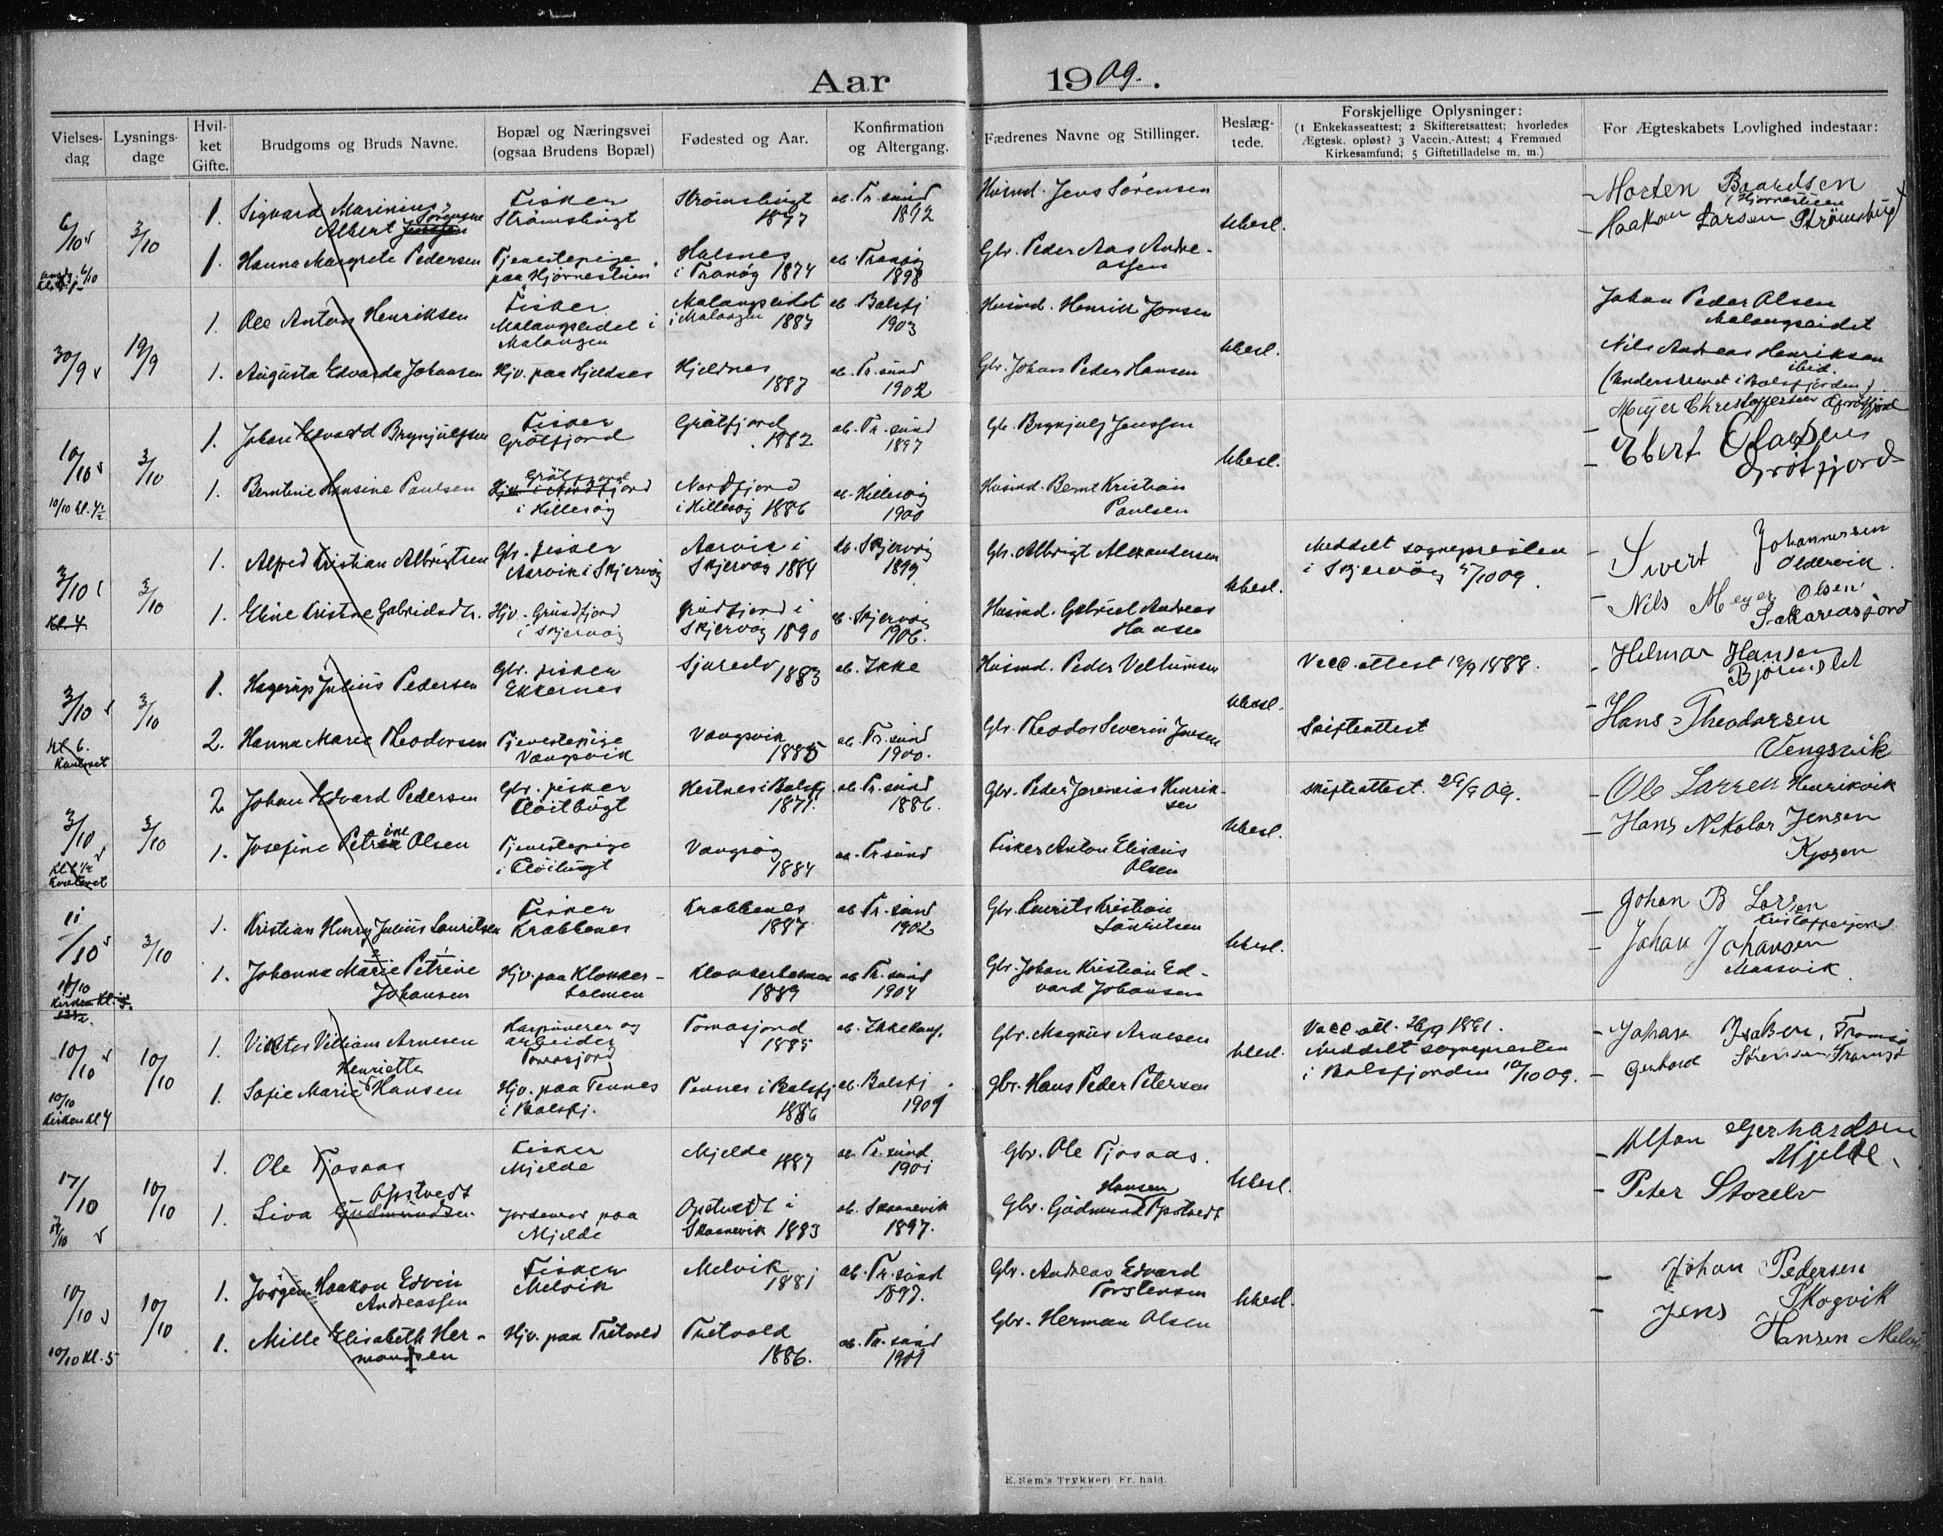 Aar 1909.
Vielses-dag
Lysnings-dage
Hvil-ket Gifte.
Brudgoms og Bruds Navne.
Bopæl og Næringsvei (ogsaa Brudens Bopæl)
Fødested og Aar.
Konfirmation og Altergang.
Fædrenes Navne og Stillinger.
Beslæg-tede.
Forskjellige Oplysninger: (1 Enkekasseattest; 2 Skifteretsattest; hvorledes Ægtesk. opløst? 3 Vaccin.-Attest; 4 Fremmed Kirkesamfund; 5 Giftetilladelse m. m.)
For Ægteskabets Lovlighed indestaar:
6/10 3/10
1. Sigvard Marinius Albert Sørensen Fisker Strømsbugt Strømsbugt 1877 ab. Tr.sund 1892 Husmd. Jens Sørensen Ubesl. Morten Baardsen Hjørnestien
Haakon Larsen Strømsbugt
1. Hanna Margrete Pedersen Tjenestepige paa Hjørnestien Halsnes i Tranøy 1874 ab. Tranøy 1898 Gbr. Peder Aas Andreassen
30/9 19/9
1. Ole Anton Henriksen Fisker Malangseidet i Malangen Malangseidet i Malangen 1887 ab. Balsfj 1903 Husmd. Henrik Jonsen Ubesl. Johan Peder Olsen Malangseidet
1. Augusta Edvarda Johansen Hjv. paa Kjeldnes Kjeldnes 1887 ab. Tr.sund 1902 Gbr. Johan Peder Hansen Nils Andreas Henriksen ibid.
(Underskrevet i Balsfjorden)
10/10 3/10
1. Johan Edvard Brynjulfsen Fisker Grøtfjord Grøtfjord 1882 ab. Tr.sund 1897 Gb. Brynjulf Jenssen Ubesl. Meyer Christoffersen Grøtfjord
10/10 kl. 4½
1. Berntine Hansine Paulsen Grøtfjord i Hillesøy Nordfjord i Hillesøy 1886 ab. Hillesøy 1900 Husmd. Bernt Kristian Paulsen Ebert Olausen Grøtfjord
3/10 3/10
1. Alfred Kristian Albrigtsen Gbr. fisker Aarvik i Skjervøy Aarvik i Skjervøy 1884 ab. Skjervøy 1899 Gbr. Albrigt Alexandersen Ubesl. Meddelt sognepresten i Skjervøy 5/10 09. Sivert Johannesen Oldervik.
Kl. 4
1. Eline Kristine Gabrielsdtr. Hjv. Grundfjord i Skjervøy Grundfjord i Skjervøy 1890 ab. Skjervøy 1906. Husmd. Gabriel Andreas Hansen Nils Meyer Olsen Sakariasjord
3/10 3/10
1. Hagerup Julius Pedersen Gbr. fisker Ekkernes 1883 ab. Ikke Husmd. Peder Veltumsen Ubesl. Vacc. attest 19/9 1888. Hilmar Hansen
Kl. 6.
2. Hanna Marie Theodorsen Tjenestepige Vangsvik Vangsvik 1885 ab. Tr.sund 1900. Gbr. Theodor Severin Jensen Skifteattest Hans Theodorsen Vengsvik
3/10 3/10
2 Johan Edvard Pedersen Gbr. fisker Fløitbugt Hestnes i Balsfj 1871. ab. Tr.sund 1886. Gbr. Peder Jeremias Henriksen Ubesl. Skifteattest 29/9 09. Ole Larsen Henrikvik
1. Josefine Petrine Olsen Tjenestepige i Fløitbugt Vangsøy 1884 ab. Tr.sund Fisker Anton Elisæus Olsen Hans Nikolai Jensen Kjosen
11/10 3/10
1. Kristian Henry Julius Lauritsen Fisker Krabbenes Krabbenes 1887 ab. Tr.sund 1902 Gbr. Laurits Kristian Lauritsen Ubesl. Johan B Larsen
1. Johanna Marie Petrine Johansen Hjv. paa 1889 ab. Tr.sund 1904 Gbr. Johan Kristian Edvard Johansen Johan Johansen Maasvik.
10/10 10/10
1. Victor Villiam Arnesen Harpunerer og arbeider Tomasjord Tomasjord 1885 ab. Ikke konf. Gbr. Magnus Arnesen Ubesl. Vacc. att. 1891. Meddelt sognepresten i Balsfjorden 10/10 09. Johan Isaksen, Tromsø
10/10 Kirken kl 4
1. Sofie Marie Henriette Hansen Hjv. paa Tennes i Balsfj. Tennes i Balsfj 1886 ab. Balsfj 1901 Gbr. Hans Peder Petersen Gerhard Sørensen, Tromsø
17/10 10/10
1. Ole Tjosaas Fisker Mjelde Mjelde 1887 ab. Tr.sund 1901 Gbr. Ole Tjosaas. Ubesl. Alfon Gerhardsen Mjelde.
1. Siva Gudmundsen Opstvedt Jordemor paa Mjelde Opstvedt i Skaanevik 1883 ab. Skaanevik 1897. Gbr. Gudmund Hansen Opstvedt Peter Storelv
10/10 10/10
1. Jørgen Haakon Edvin Andreassen Fisker Melvik Melvik 1881 ab. Tr.sund 1897. Gbr. Andreas Edvard Torstensen Ubesl. Johan Pedersen Skogvik
10/10 Kl. 5
1. Mille Elisabeth Hermansen Hjv. paa Tretvold Tretvold 1886. ab. Tr.sund 1901 Gbr. Herman Olsen Jens Hansen Melvik
E. Sem's Trykkeri Fr.hald.